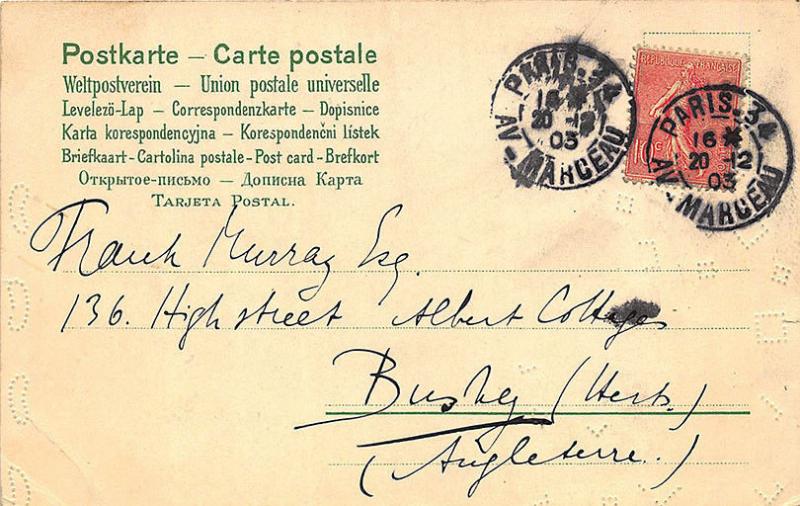 Postkarte — Carte postale
Weltpostverein — Union postale universelle
Levelező-Lap — Correspondenzkarte — Dopisnice
Karta korespondencyjna — Korespondenční lístek
Briefkaart - Cartolina postale - Post card - Brefkort
Открытое-письмо — Дописна Карта
TARJETA POSTAL.
PARIS·34
16
20 12
03
AV. MARCEAU
RÉPUBLIQUE FRANÇAISE
10c
PARIS·34
16
20 12
03
AV. MARCEAU
Frank Murray Esq.
136. High street Albert Cottages
Bushey (Herts.)
(Angleterre.)